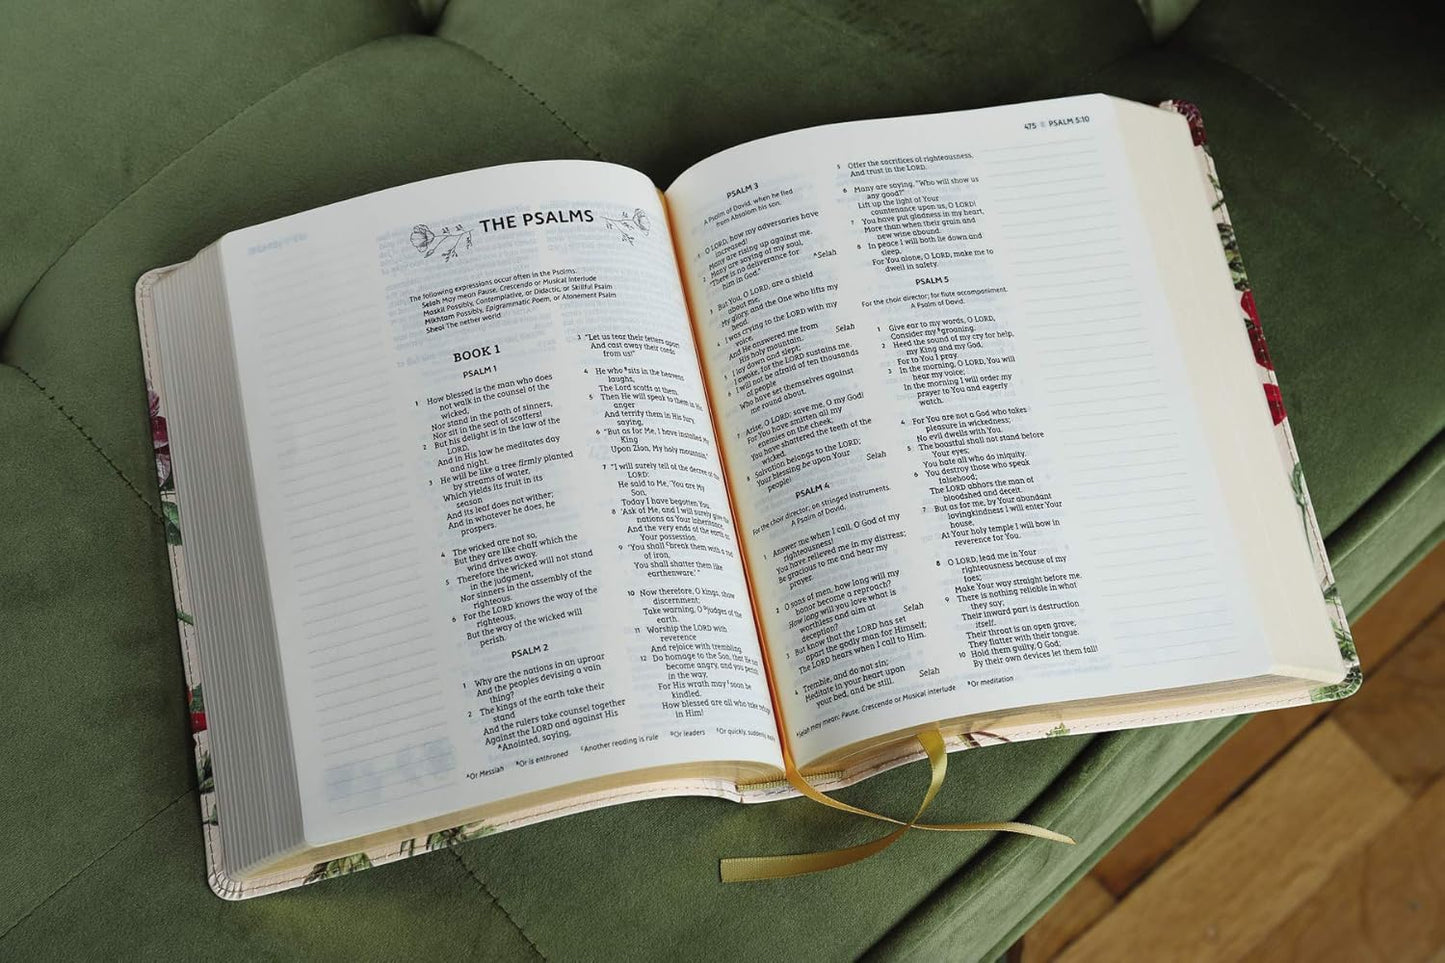 THE PSALMS
The following expressions occur often in the Psalms.
Selah May mean Pause, Crescendo or Musical Interlude
Maskil Possibly, Contemplative, or Didactic, or Skillful Psalm
Mikhtam Possibly, Epigrammatic Poem, or Atonement Psalm
Sheol The nether world
BOOK 1
PSALM 1
1 How blessed is the man who does
not walk in the counsel of the
wicked,
Nor stand in the path of sinners,
Nor sit in the seat of scoffers!
2 But his delight is in the law of the
LORD,
And in His law he meditates day
and night.
3 He will be like a tree firmly planted
by streams of water,
Which yields its fruit in its
season
And its leaf does not wither;
And in whatever he does, he
prospers.
4 The wicked are not so,
But they are like chaff which the
wind drives away.
5 Therefore the wicked will not stand
in the judgment,
Nor sinners in the assembly of the
righteous.
6 For the LORD knows the way of the
righteous,
But the way of the wicked will
perish.
PSALM 2
1 Why are the nations in an uproar
And the peoples devising a vain
thing?
2 The kings of the earth take their
stand
And the rulers take counsel together
Against the LORD and against His
ᴬAnointed, saying,
3 "Let us tear their fetters apart
And cast away their cords
from us!"
4 He who ᴮsits in the heavens
laughs,
The Lord scoffs at them.
5 Then He will speak to them in His
anger
And terrify them in His fury,
saying,
6 "But as for Me, I have installed My
King
Upon Zion, My holy mountain."
7 "I will surely tell of the decree of the
LORD:
He said to Me, 'You are My
Son,
Today I have begotten You.
8 'Ask of Me, and I will surely give the
nations as Your inheritance,
And the very ends of the earth as
Your possession.
9 'You shall ᶜbreak them with a rod
of iron,
You shall shatter them like
earthenware.'"
10 Now therefore, O kings, show
discernment;
Take warning, O ᴰjudges of the
earth.
11 Worship the LORD with
reverence
And rejoice with trembling.
12 Do homage to the Son, that He not
become angry, and you perish
in the way,
For His wrath may ᴱsoon be
kindled.
How blessed are all who take refuge
in Him!
ᴬOr Messiah ᴮOr is enthroned ᶜAnother reading is rule ᴰOr leaders ᴱOr quickly, suddenly,
475 PSALM 5:10
PSALM 3
A Psalm of David, when he fled
from Absalom his son.
1 O LORD, how my adversaries have
increased!
Many are rising up against me.
2 Many are saying of my soul,
"There is no deliverance for
him in God." ᴬSelah
3 But You, O LORD, are a shield
about me,
My glory, and the One who lifts my
head.
4 I was crying to the LORD with my
voice,
And He answered me from
His holy mountain. Selah
5 I lay down and slept;
I awoke, for the LORD sustains me.
6 I will not be afraid of ten thousands
of people
Who have set themselves against
me round about.
7 Arise, O LORD; save me, O my God!
For You have smitten all my
enemies on the cheek;
You have shattered the teeth of the
wicked.
8 Salvation belongs to the LORD;
Your blessing be upon Your
people! Selah
PSALM 4
For the choir director; on stringed instruments.
A Psalm of David.
1 Answer me when I call, O God of my
righteousness!
You have relieved me in my distress;
Be gracious to me and hear my
prayer.
2 O sons of men, how long will my
honor become a reproach?
How long will you love what is
worthless and aim at
deception? Selah
3 But know that the LORD has set
apart the godly man for Himself;
The LORD hears when I call to Him.
4 Tremble, and do not sin;
Meditate in your heart upon
your bed, and be still. Selah
5 Offer the sacrifices of righteousness,
And trust in the LORD.
6 Many are saying, "Who will show us
any good?"
Lift up the light of Your
countenance upon us, O LORD!
7 You have put gladness in my heart,
More than when their grain and
new wine abound.
8 In peace I will both lie down and
sleep,
For You alone, O LORD, make me to
dwell in safety.
PSALM 5
For the choir director; for flute accompaniment.
A Psalm of David.
1 Give ear to my words, O LORD,
Consider my ᴮgroaning.
2 Heed the sound of my cry for help,
my King and my God,
For to You I pray.
3 In the morning, O LORD, You will
hear my voice;
In the morning I will order my
prayer to You and eagerly
watch.
4 For You are not a God who takes
pleasure in wickedness;
No evil dwells with You.
5 The boastful shall not stand before
Your eyes;
You hate all who do iniquity.
6 You destroy those who speak
falsehood;
The LORD abhors the man of
bloodshed and deceit.
7 But as for me, by Your abundant
lovingkindness I will enter Your
house,
At Your holy temple I will bow in
reverence for You.
8 O LORD, lead me in Your
righteousness because of my
foes;
Make Your way straight before me.
9 There is nothing reliable in what
they say;
Their inward part is destruction
itself.
Their throat is an open grave;
They flatter with their tongue.
10 Hold them guilty, O God;
By their own devices let them fall!
ᴬSelah may mean: Pause, Crescendo or Musical interlude ᴮOr meditation